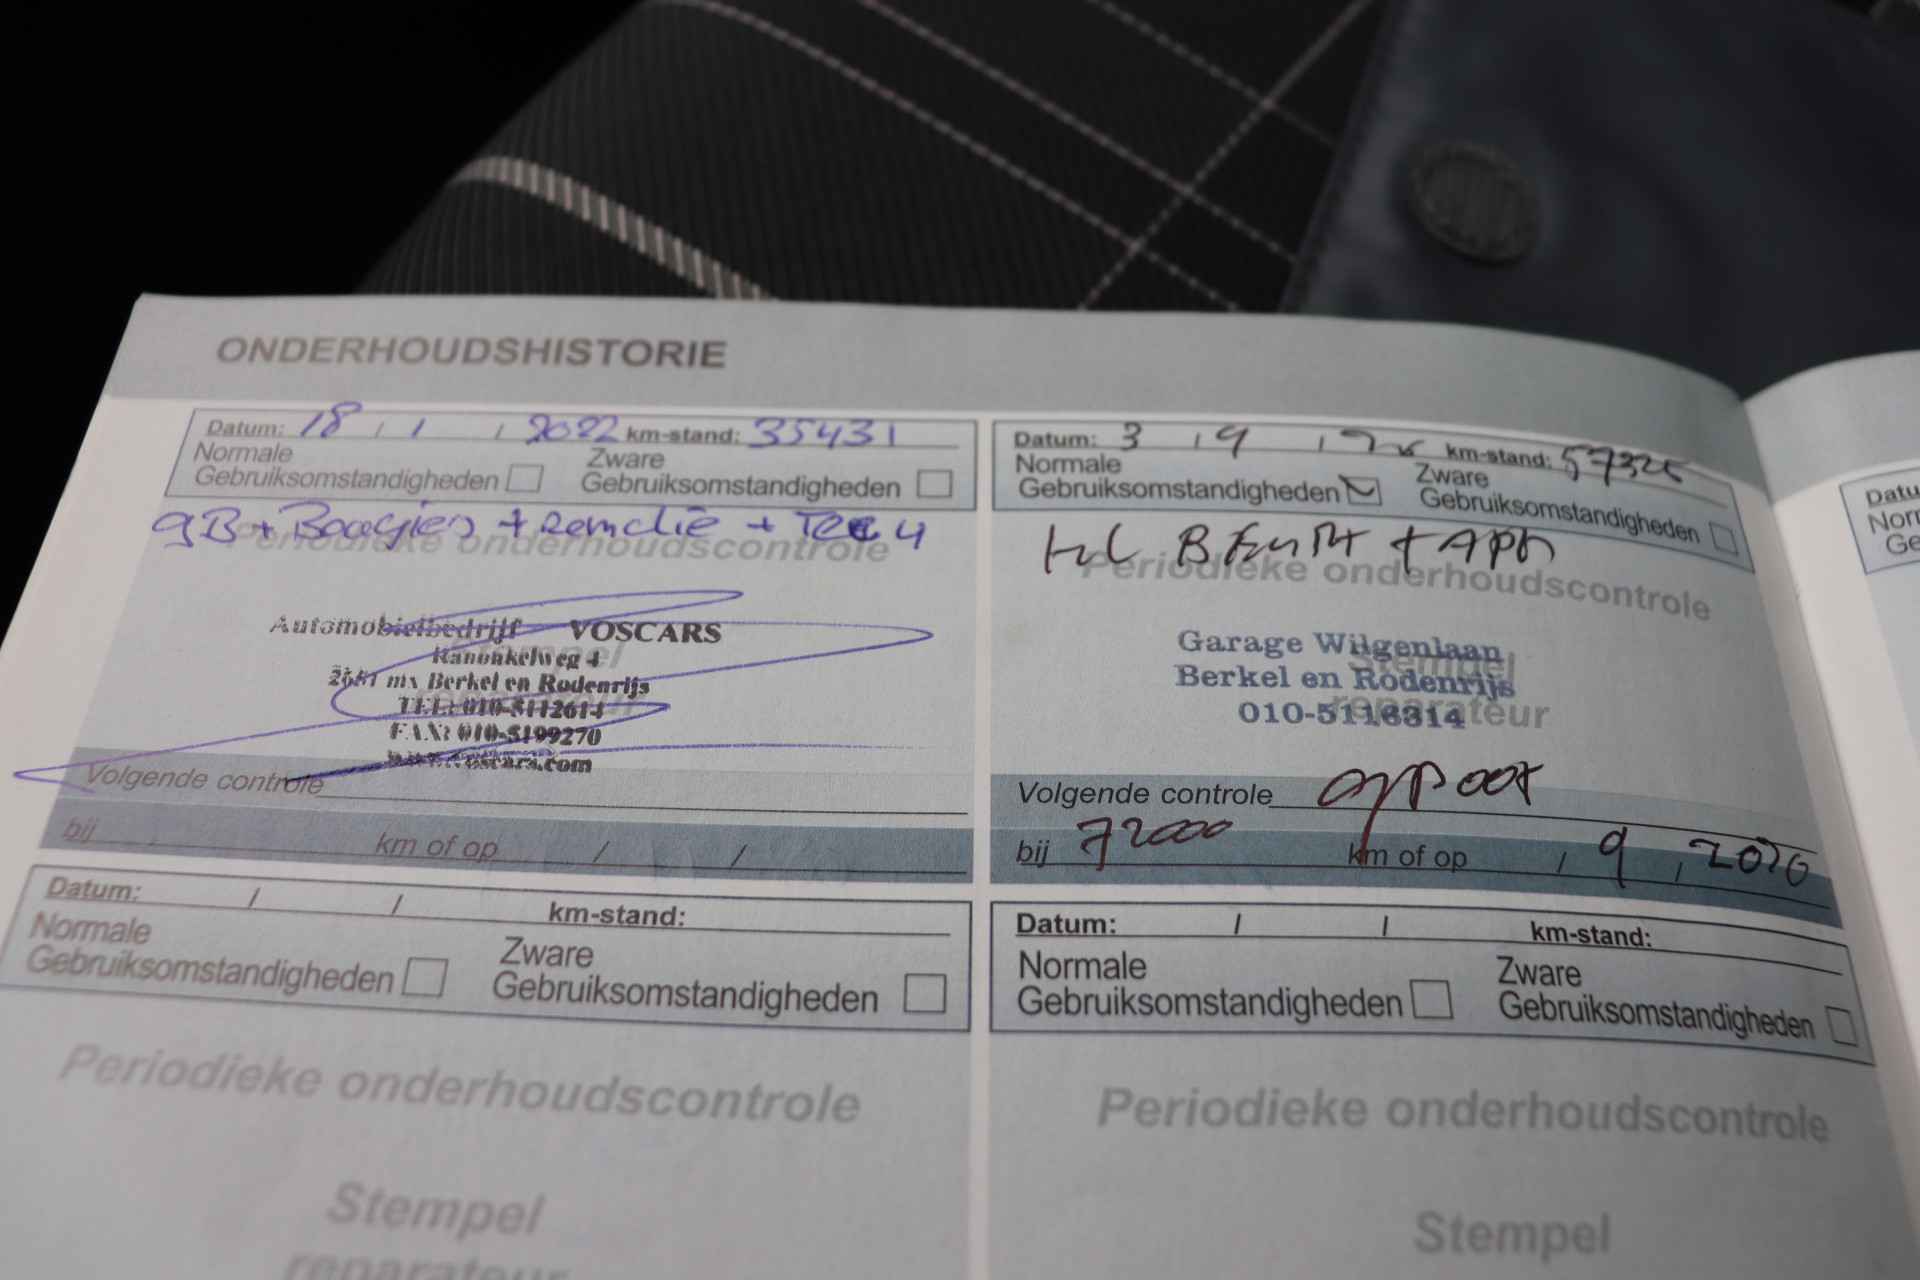 ONDERHOUDSHISTORIE
Datum: 18 / 1 / 2022 km-stand: 35431
Normale
Gebruiksomstandigheden
Zware
Gebruiksomstandigheden
gB + Boogies +
Periodieke onderhoudscontrole
Automobielbedrijf VOSCARS
Ranonkelweg 4
2651 mx Berkel en Rodenrijs
TEL: 010-5112614
FAX: 010-5199270
www.voscars.com
Stempel
reparateur
Volgende controle
bij km of op / /
Datum: / / km-stand:
Normale
Gebruiksomstandigheden
Zware
Gebruiksomstandigheden
Periodieke onderhoudscontrole
Stempel
reparateur
Datum: 3 / 9 / km-stand:
Normale
Gebruiksomstandigheden
Zware
Gebruiksomstandigheden
Periodieke onderhoudscontrole
Garage Wilgenlaan
Berkel en Rodenrijs
010-5116314
Stempel
reparateur
Volgende controle
bij 72000 km of op / 9 /
Datum: / / km-stand:
Normale
Gebruiksomstandigheden
Zware
Gebruiksomstandigheden
Periodieke onderhoudscontrole
Stempel